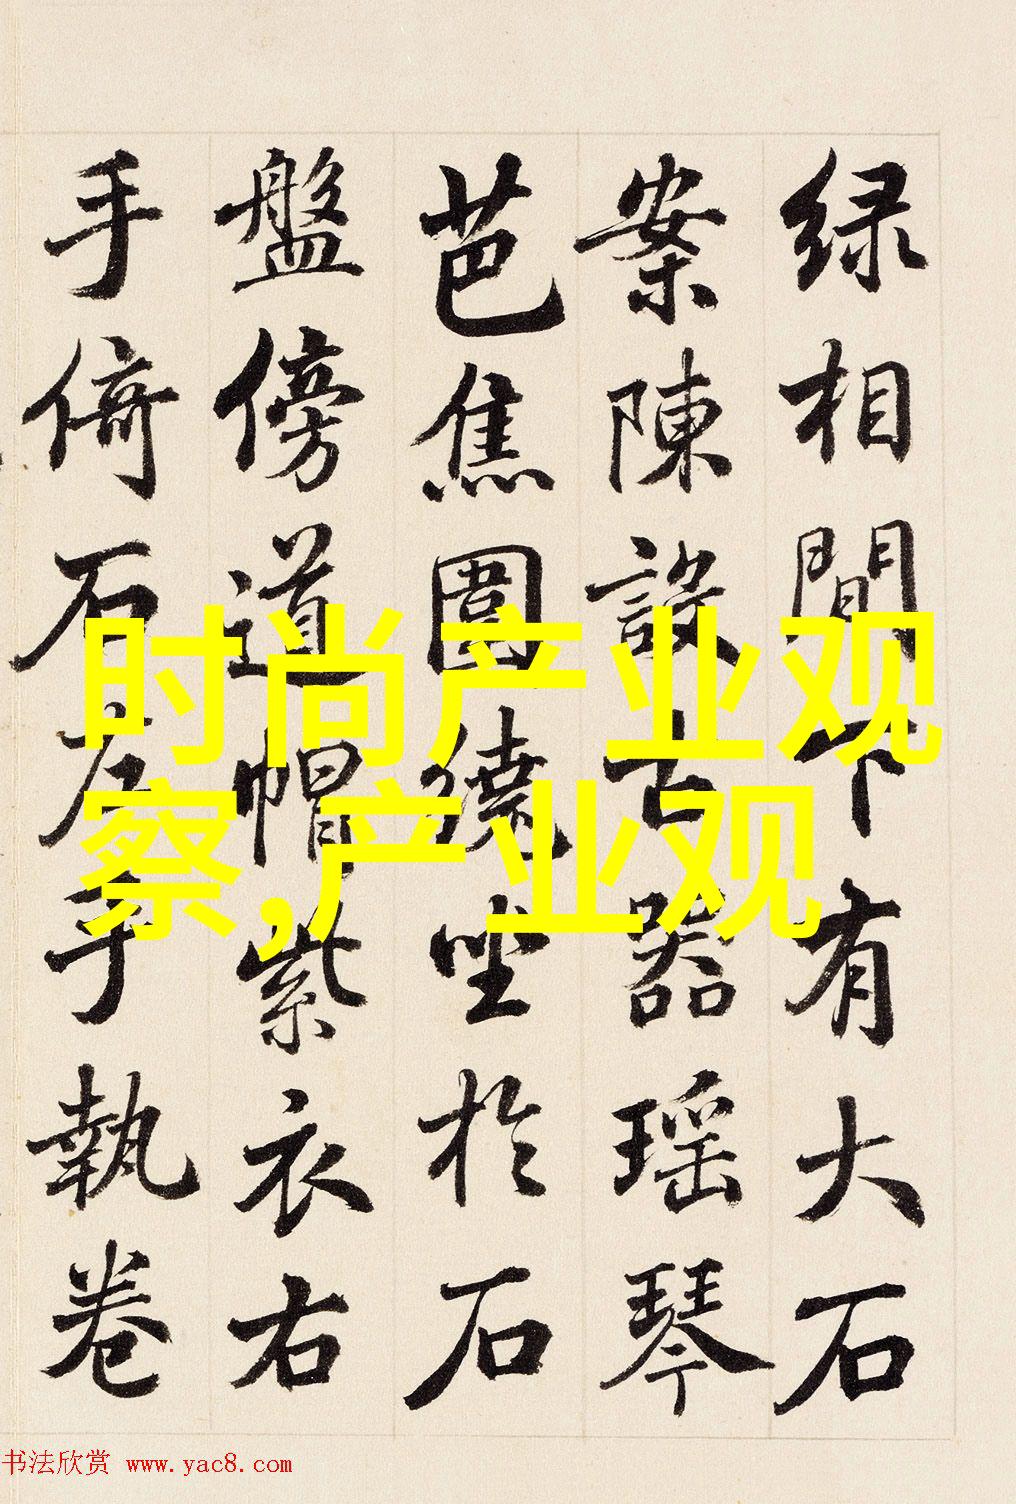 绿相間下有大石
案陳設古器瑶琴
芭焦圍繞坐於石
盤傍道帽紫衣右
手倚石左手執卷
时尚产业观
察,产业观
书法欣赏 www.yac8.com